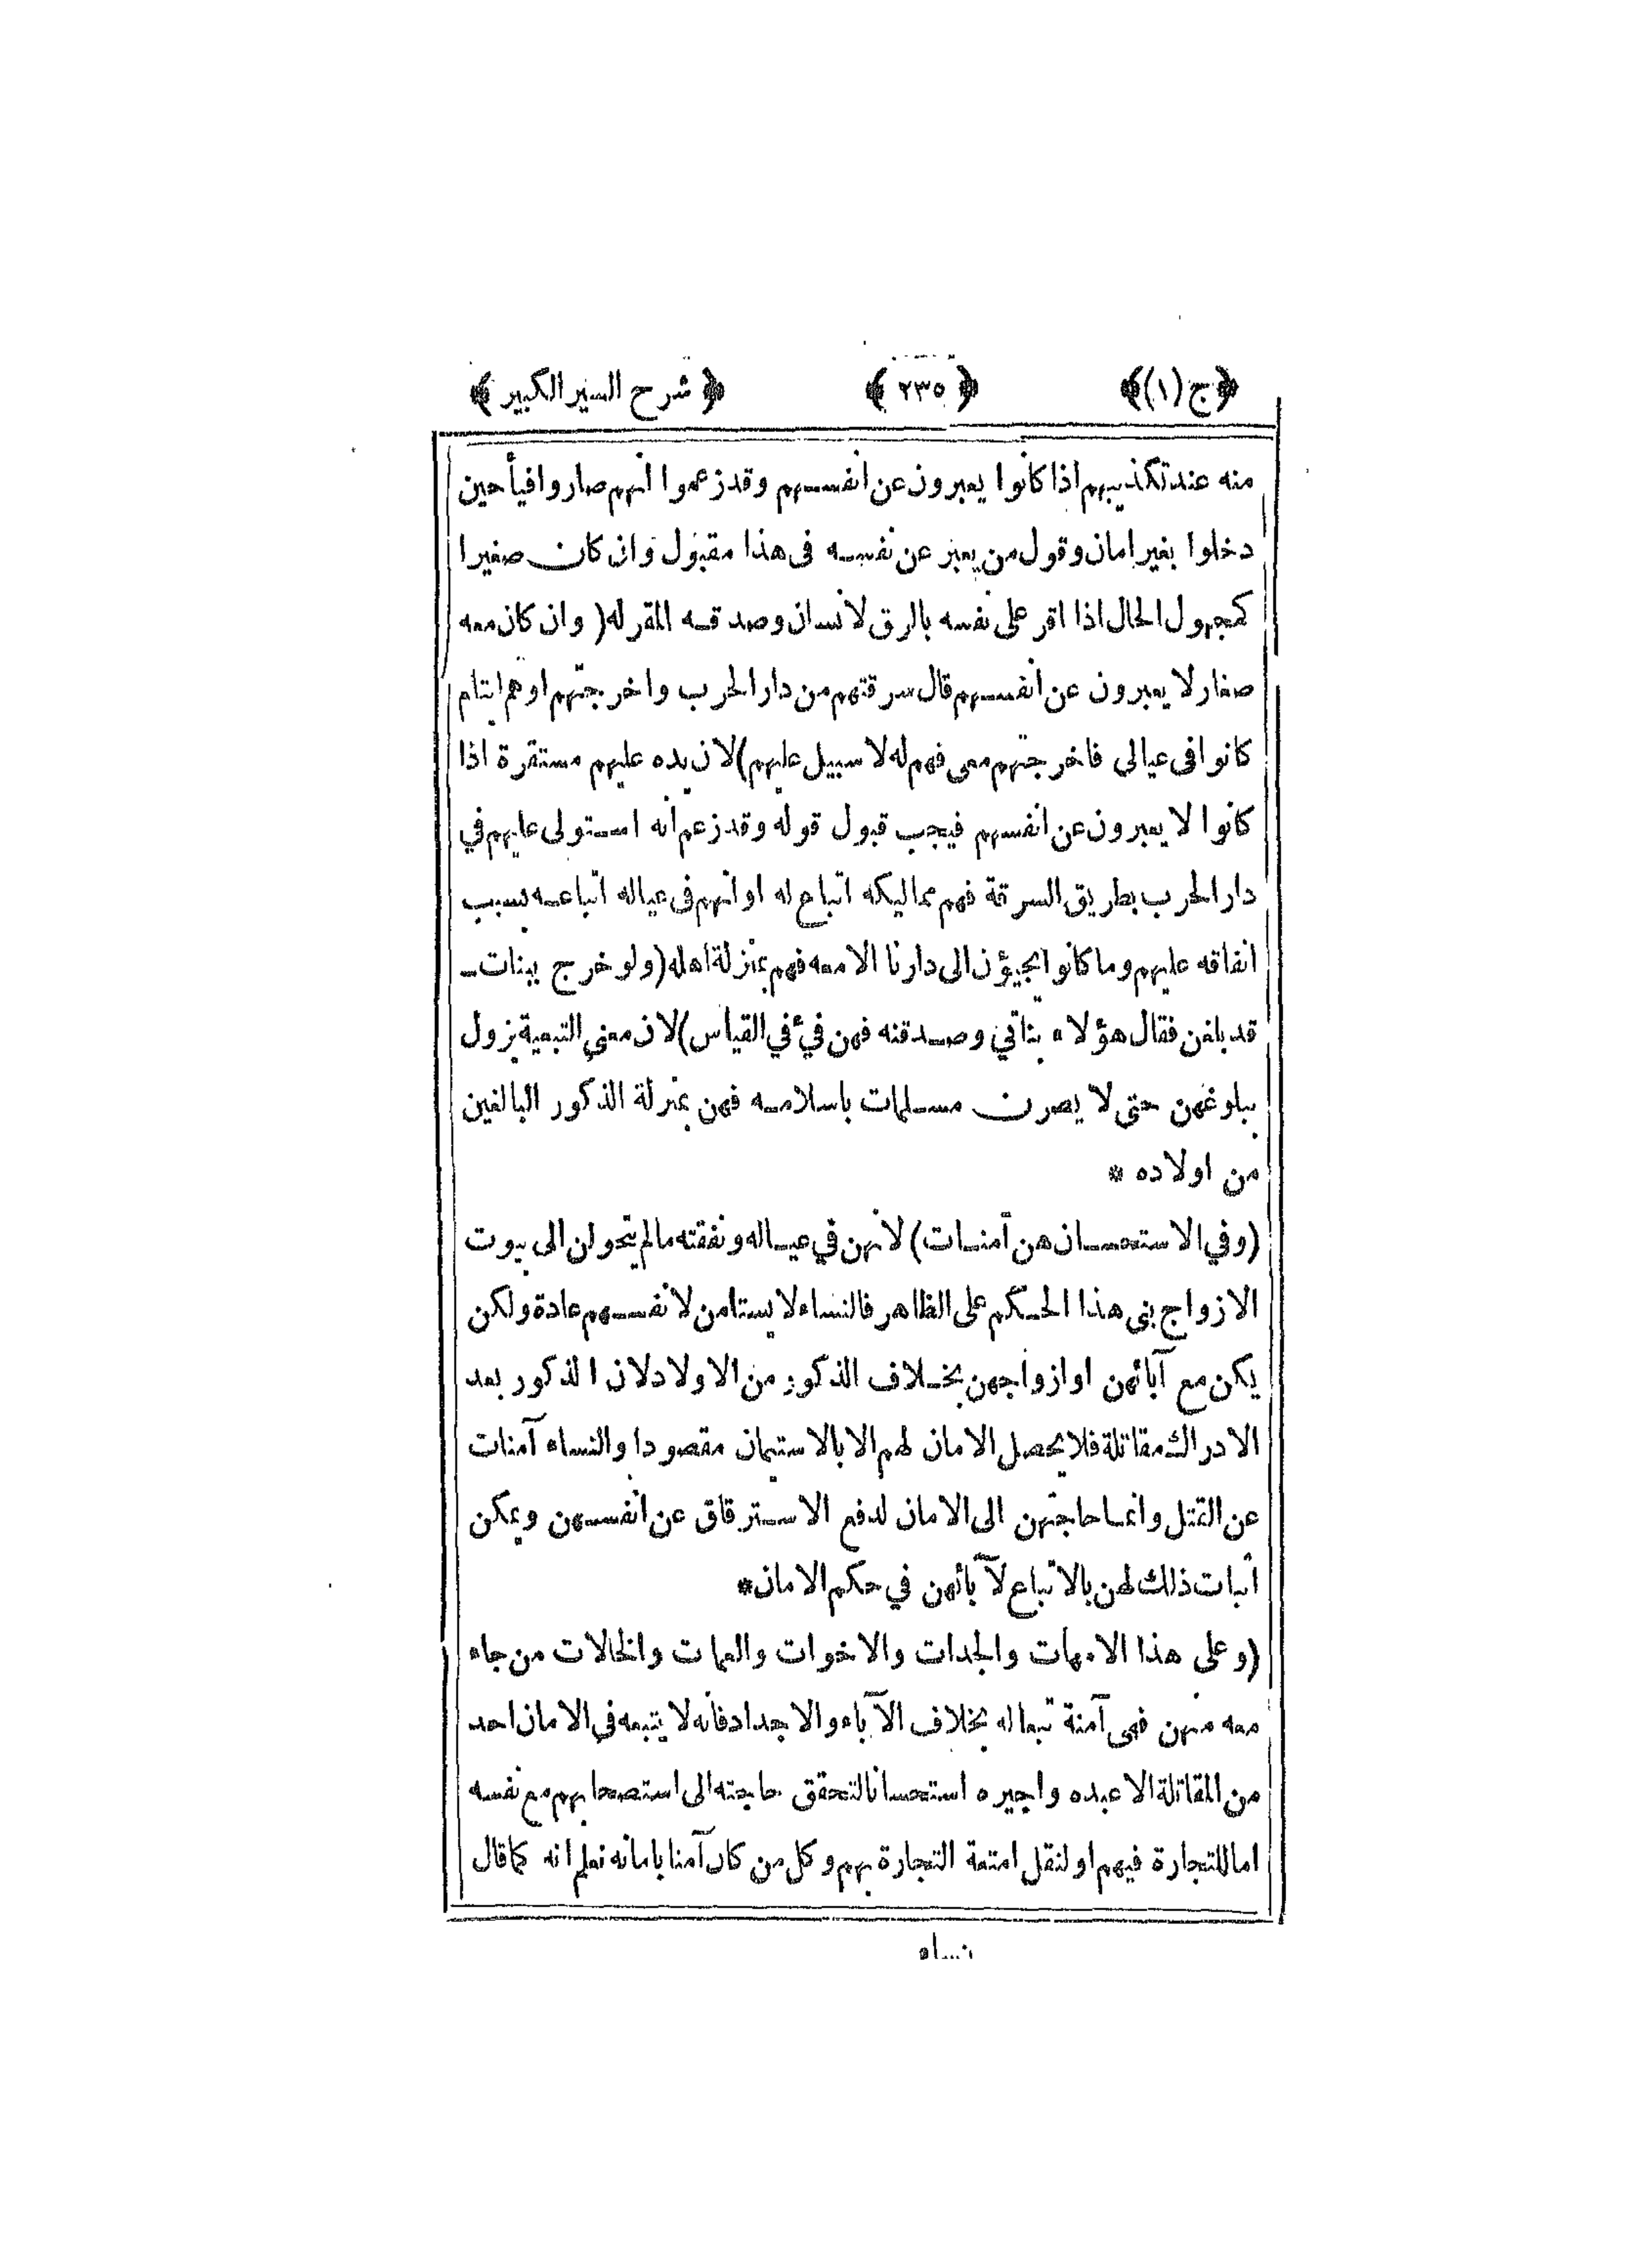 ﴿ج(١)﴾ ﴿٢٣٥﴾ ﴿شرح السير الكبير﴾
منه عند تكذيبهم اذا كانوا يعبرون عن انفسهم وقد زعموا انهم صاروا فيأ حين
دخلوا بغير امان وقول من يعبر عن نفسه فى هذا مقبول وان كان صغيرا
كمجهول الحال اذا اقر على نفسه بالرق لانسان وصدقه المقر له (وان كان معه
صغار لا يعبرون عن انفسهم قال سرقتهم من دار الحرب واخرجتهم او هم ايتام
كانوا فى عيالى فاخرجتهم معى فهم له لا سبيل عليهم) لان يده عليهم مستقرة اذا
كانوا لا يعبرون عن انفسهم فيجب قبول قوله وقد زعم انه استولى عليهم في
دار الحرب بطريق السرقة فهم مماليكه اتباع له او انهم فى عياله اتباعه بسبب
انفاقه عليهم وما كانوا يجيؤن الى دارنا الا معه فهم بمنزلة اهله (ولو خرج ببنات
قد بلغن فقال هؤلاء بناتي وصدقنه فهن فيء في القياس) لان معنى التبعية يزول
ببلوغهن حتى لا يصرن مسلمات باسلامه فهن بمنزلة الذكور البالغين
من اولاده *
(وفي الاستحسان هن آمنات) لانهن في عياله ونفقته ما لم يتحولن الى بيوت
الازواج بنى هذا الحكم على الظاهر فالنساء لا يستامن لانفسهم عادة ولكن
يكن مع آبائهن او ازواجهن بخلاف الذكور من الاولاد لان الذكور بعد
الادراك مقاتلة فلا يحصل الامان لهم الا بالاستيمان مقصودا والنساء آمنات
عن القتل وانما حاجتهن الى الامان لدفع الاسترقاق عن انفسهن ويمكن
اثبات ذلك لهن بالاتباع لآبائهن في حكم الامان *
(وعلى هذا الامهات والجدات والاخوات والعمات والخالات من جاء
معه منهن فهى آمنة تبعا له بخلاف الآباء والاجداد فانه لا يتبعه في الامان احد
من المقاتلة الا عبده واجيره استحسانا لتحقق حاجته الى استصحابهم مع نفسه
اما للتجارة فيهم او لنقل امتعة التجارة بهم وكل من كان آمنا بامانه نعلم انه كما قال
نساء